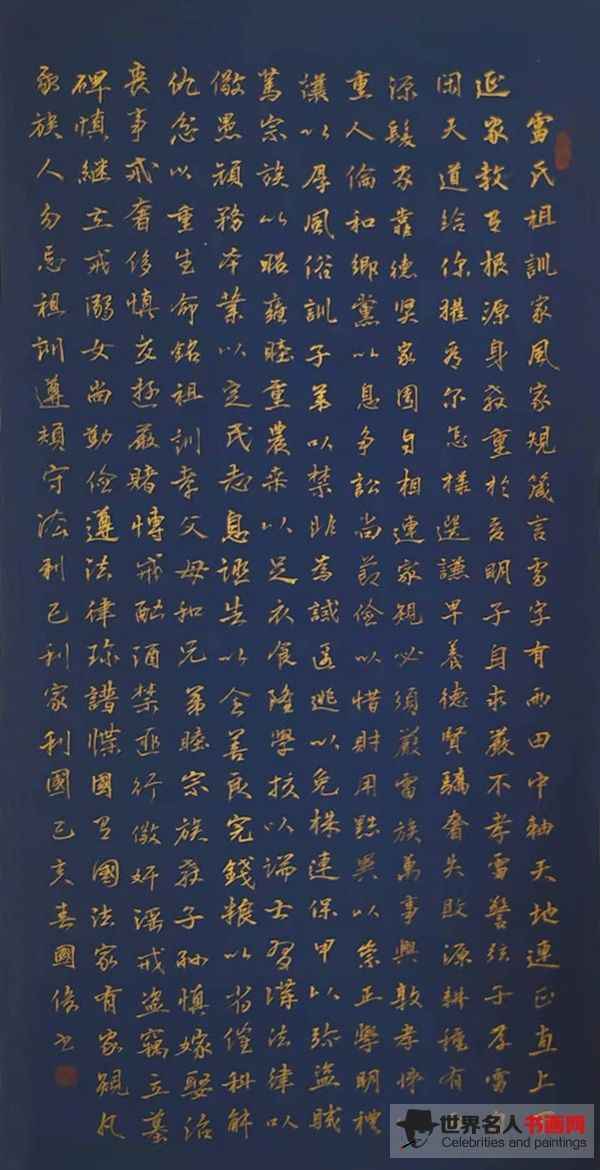 雷氏祖訓家風家規箴言雷字有雨田中軸天地連正直上
延家教有根源身教重於言明子自求嚴不孝雷警弦子孝雷
天道給你擺看尔怎樣選謙卑養德賢驕奢失敗源耕種有
源發家靠德興家國自相連家規必須嚴雷族萬事興敦孝悌
重人倫和鄉黨以息爭訟尚節儉以惜財用黜異以崇正學明禮
讓以厚風俗訓子弟以禁非為誡匿逃以免株連保甲以弭盜賊
篤宗族以昭雍睦重農桑以足衣食隆學校以端士習講法律以
儆愚頑務本業以定民志息誣告以全善良完錢糧以省催科解
仇忿以重生命銘祖訓孝父母和兄弟睦宗族教子孫慎嫁娶治
喪事戒奢侈慎交游嚴賭博戒酗酒禁匪行儆奸淫戒盜竊立墓
碑慎繼立戒溺女尚勤儉遵法律珍譜牒國有國法家有家規凡
族人勿忘祖訓遵守法利己利家利國己亥春國俊书
世界名人书画网
Celebrities and paintings